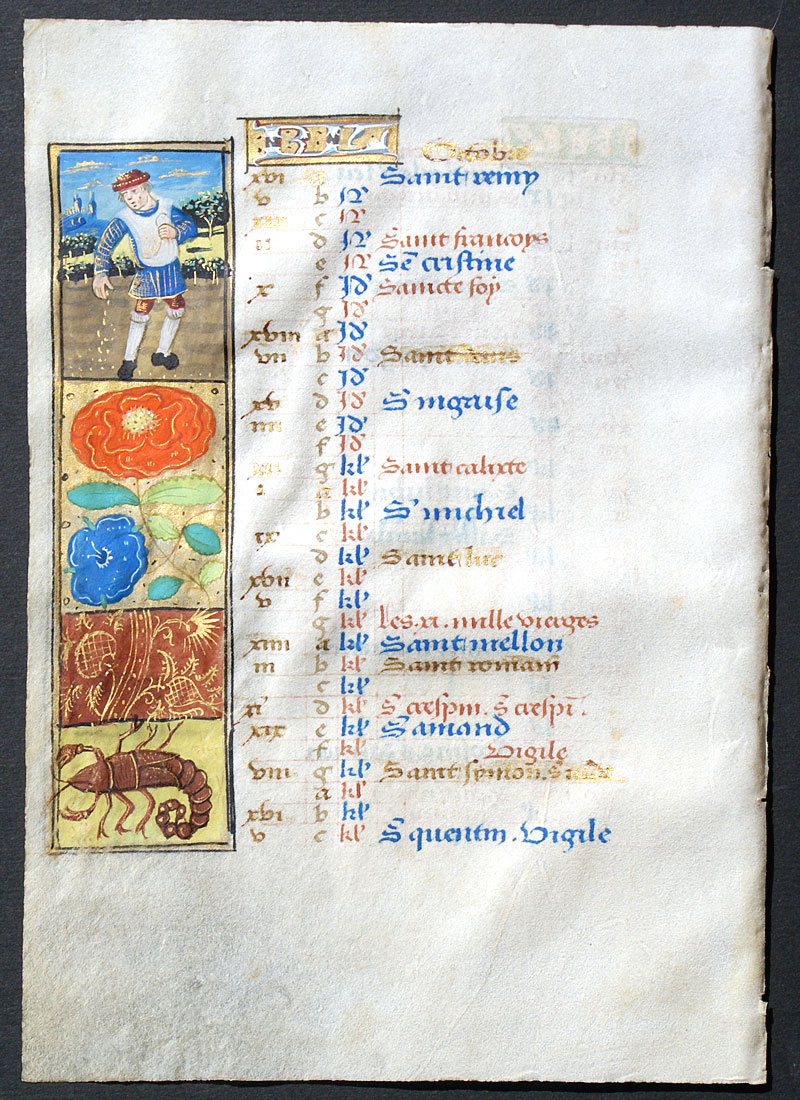 KL
Octobre
xvi a Saint remy
v b N
xiii c N
ii d N Saint francoys
e N Se cristine
x f Id Saincte foy
g Id
xviii a Id
vii b Id Saint denis
c Id
xv d Id S nigaise
iiii e Id
f Id
xii g kl Saint calixte
i a kl
b kl S michiel
ix c kl
d kl Saint luc
xvii e kl
v f kl
g kl Les xi. mille vierges
xiiii a kl Saint mellon
iii b kl Saint romain
c kl
xi d kl S crespin. S crespi.
xix e kl S amand
f kl Vigile
viii g kl Saint symon. S jude
a kl
xvi b kl
v c kl S quentin. Vigile